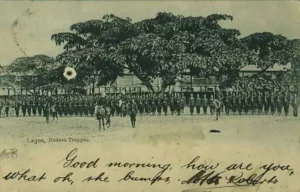 Lagos, Haussa Troops.
Good morning, how are you,
What oh, she bumps. Roberts